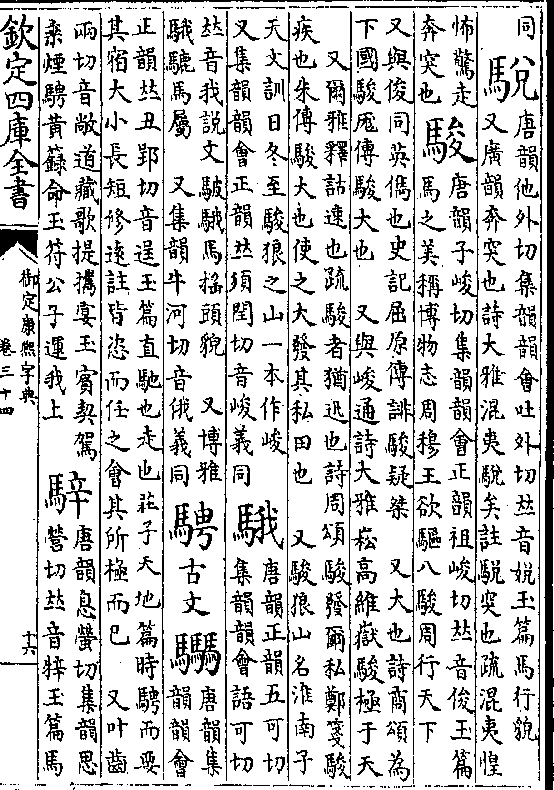 同
駾
唐韻他外切集韻韻會吐外切𠀤音娧玉篇馬行貌
又廣韻奔突也詩大雅混夷駾矣註駾突也疏混夷惶
怖驚走
奔突也
駿
唐韻子峻切集韻韻會正韻祖峻切𠀤音俊玉篇
馬之美稱博物志周穆王欲驅八駿周行天下
又與俊同英儁也史記屈原傳誹駿疑桀 又大也詩商頌為
下國駿厖傳駿大也 又與峻通詩大雅崧高維嶽駿極于天
又爾雅釋詁速也疏駿者猶迅也詩周頌駿發爾私鄭箋駿
疾也朱傳駿大也使之大發其私田也 又駿狼山名淮南子
天文訓日冬至駿狼之山一本作峻
又集韻韻會正韻𠀤須閏切音峻義同
騀
唐韻正韻五可切
集韻韻會語可切
𠀤音我說文駊騀馬搖頭貌 又博雅
騀驉馬屬 又集韻牛河切音俄義同
騁
古文
𩧢
唐韻集
韻韻會
正韻𠀤丑郢切音逞玉篇直馳也走也莊子天地篇時騁而要
其宿大小長短修遠註皆恣而任之會其所極而已 又叶齒
兩切音敞道藏歌提攜宴玉賓契駕
乘煙騁黃籙命玉符公子運我上
騂
唐韻息營切集韻思
營切𠀤音牸玉篇馬
欽定四庫全書
御定康熙字典
卷三十四
十六